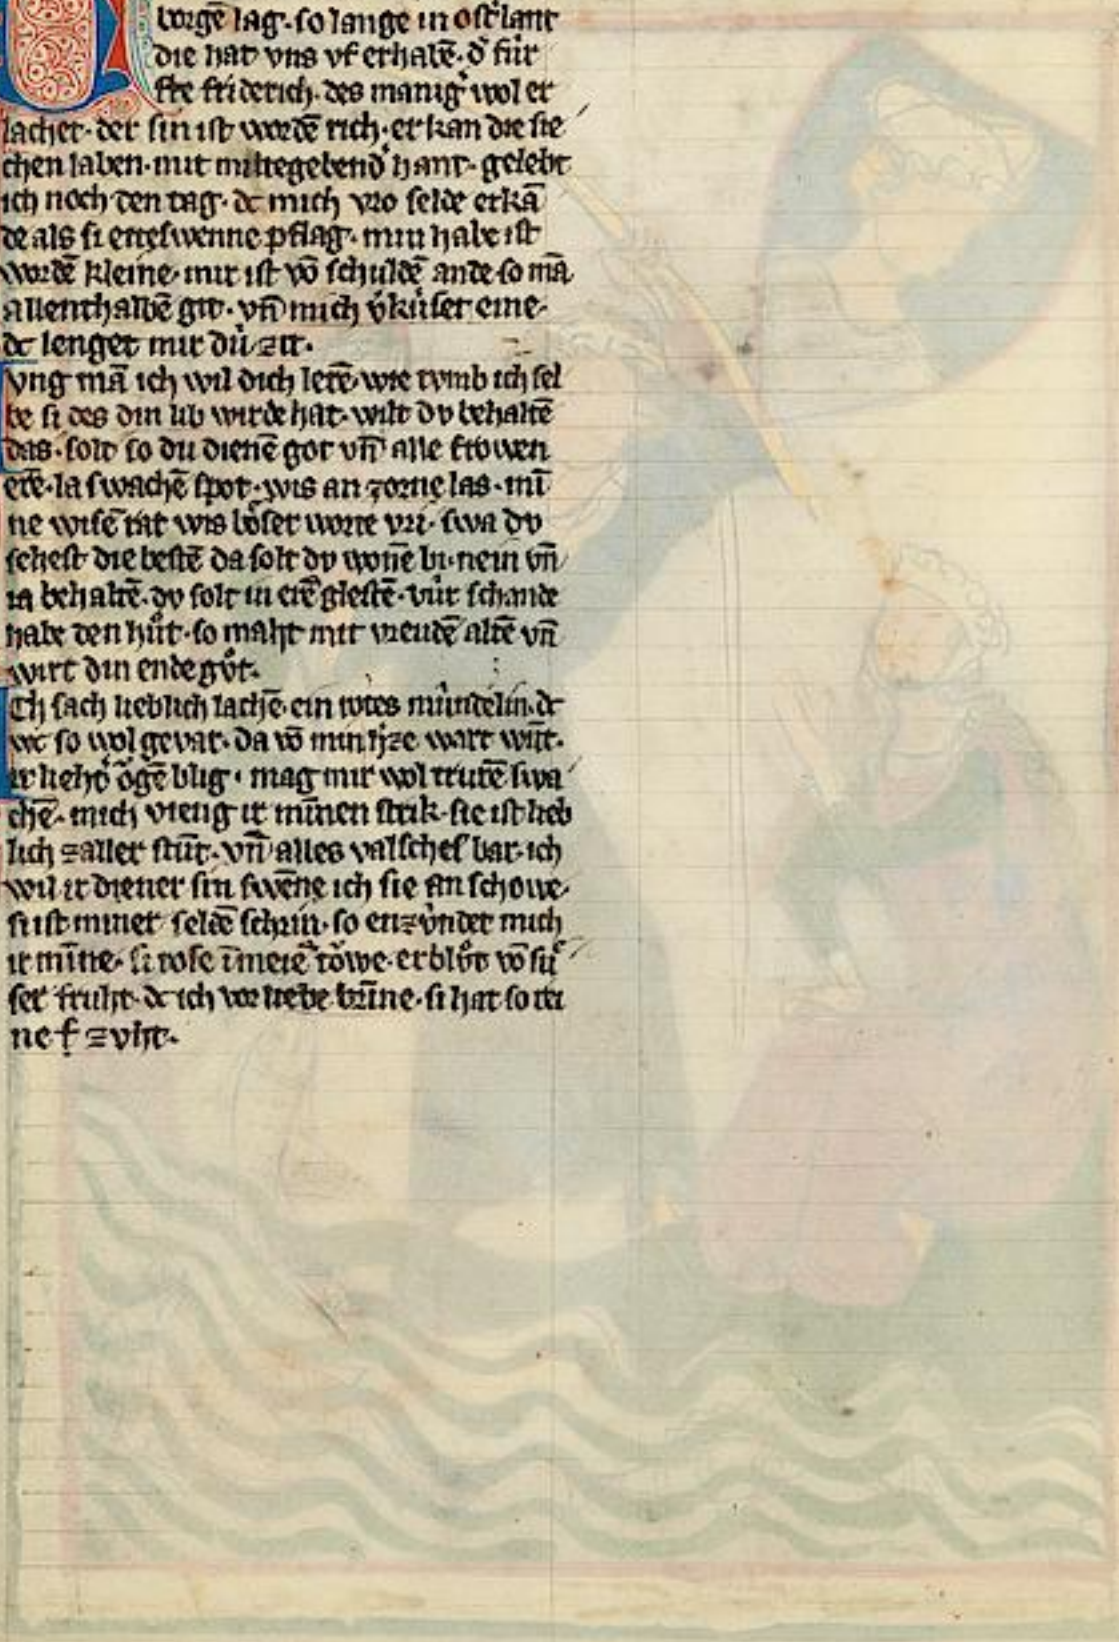 borgē lag. so lange in ostˀlant
die hat vns vf erhabē. dˀ fúr
ste friderich. des manigˀ wol er
lachet. der sin ist wordē rich. er kan die sie
chen laben. mit miltegebendˀ hant. gelebt
ich noch den tag. dc mich vro selde erkā
de als si etteswenne pflag. min habe ist
wordē kleine. mir ist vō schuldē ande so mā
allenthalbē git. vn̄ mich vˀkúset eine.
dc lenget mir dú zit.
Vng mā ich wil dich lerē. wie tvmb ich sel
be si des din lib wirde hat. wilt dv behaltē
das. solt so du dienē got vn̄ alle frowen
erē. la swachē spot. wis an zorne las. mī
ne wisē rat wis bo̊ser worte vri. swa dv
sehest die bestē da solt dv wonē bi. nein vn̄
ia behaltē. dv solt in erē glestē. vúr schande
habe den hůt. so maht mit vreudē altē vn̄
wirt din ende gůt.
Ch sach lieblich lachē. ein rotes múndelin. dc
wc so wol gevar. da vō min hˀze wart wūt.
ir liehtˀ ŏgē blig. mag mir wol trurē swa
chē. mich vieng ir mīnen strik. sie ist lieb
lich zaller stūt. vn̄ alles valsches bar. ich
wil ir diener sin swēne ich sie an schowe.
si ist miner seldē schrin. so enzúndet mich
ir mīne. si rose īmeiē towe. erblůt vō sů
ser fruht. dc ich vor liebe brīne. si hat so rei
ne f zvht.